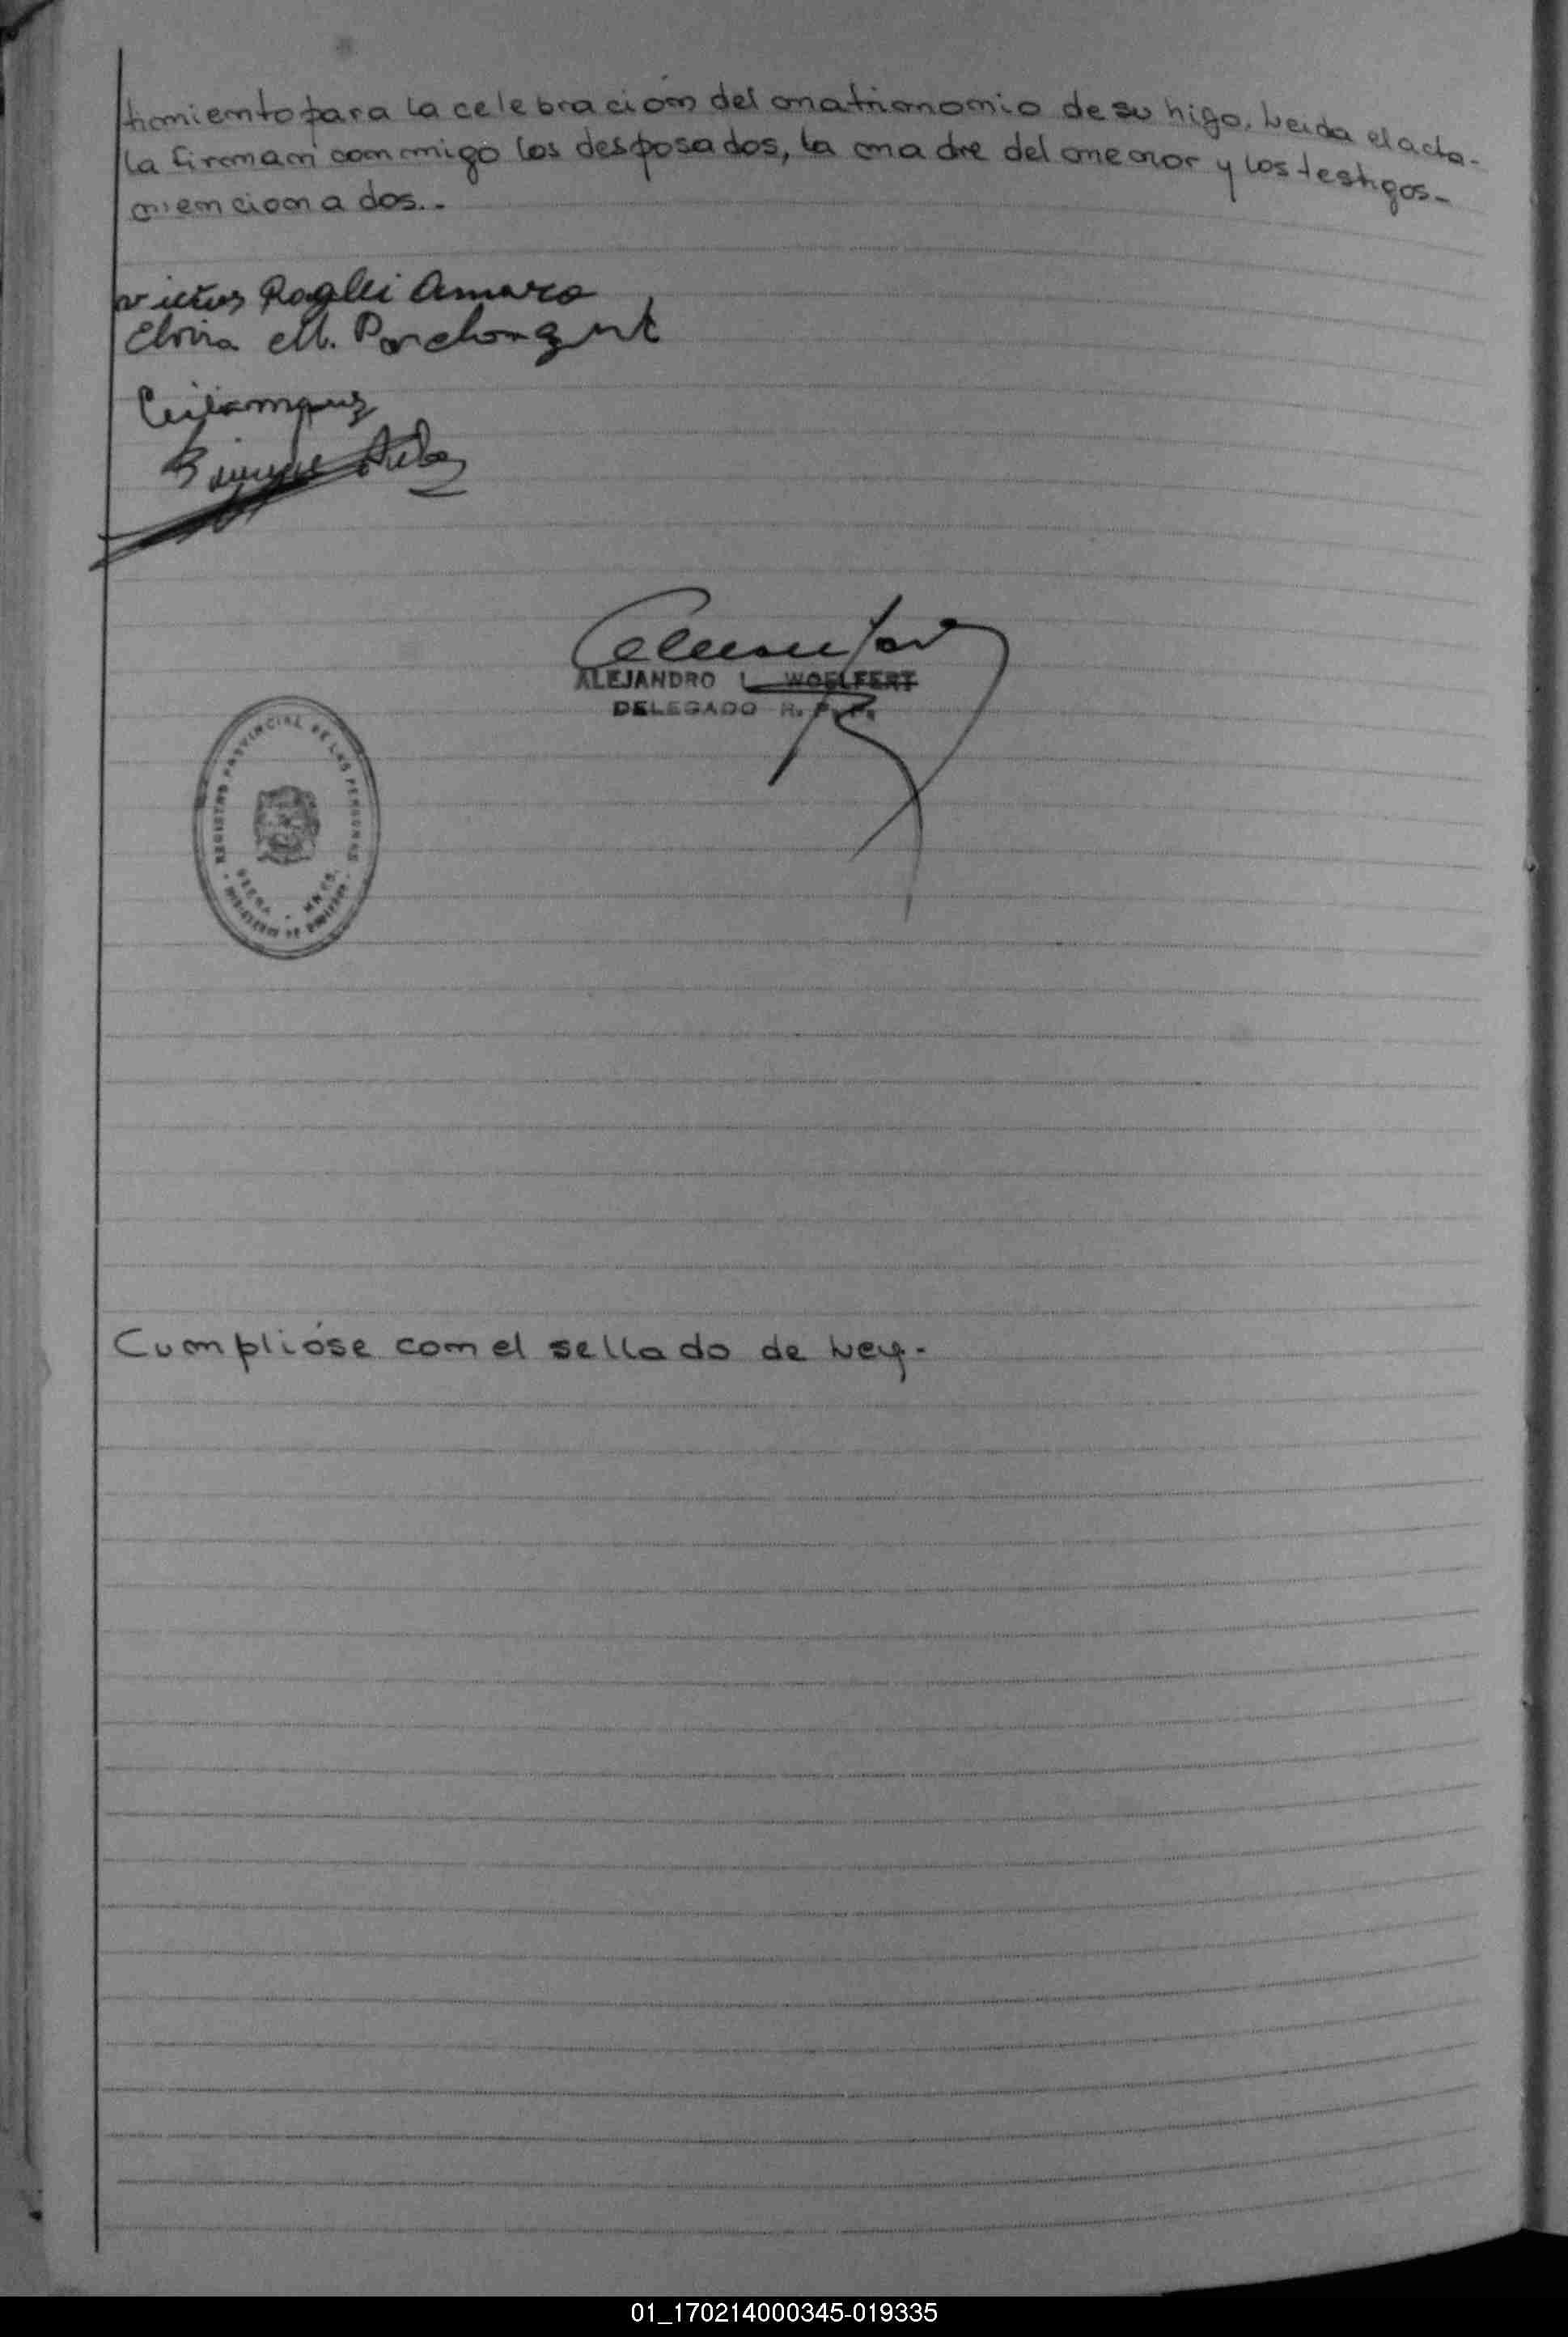 timiento para la celebración del matrimonio de su higo. Leida el acta-
la firman conmigo los desposados, la madre del menor y los testigos-
mencionados.-
Amaro
Elvira M.
ALEJANDRO L. WOELFERT
DELEGADO R. P. P.
REGISTRO PROVINCIAL DE LAS PERSONAS
Cumplióse con el sellado de Ley.-
01_170214000345-019335